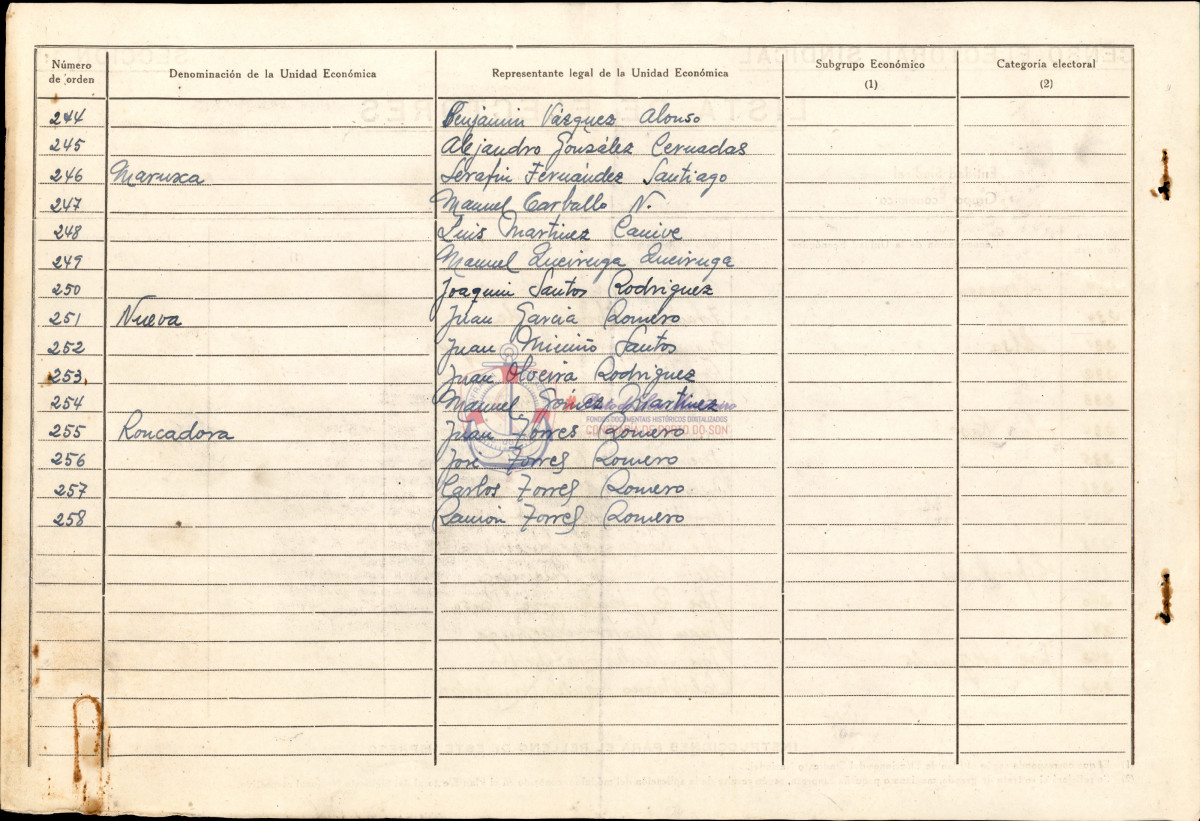 Número de orden Denominación de la Unidad Económica Representante legal de la Unidad Económica Subgrupo Económico (1) Categoría electoral (2)
244 Benjamin Vázquez Alonso
245 Alejandro González Cernadas
246 Maruxa Serafin Fernández Santiago
247 Manuel Carballo N.
248 Luis Martinez Canive
249 Manuel Queiruga Queiruga
250 Joaquin Santos Rodriguez
251 Nueva Juan Garcia Romero
252 Juan Miciño Santos
253 Juan Oloeira Rodriguez
254 Manuel Gómez Martinez
255 Roncadora Juan Torres Romero
FONDOS DOCUMENTAIS HISTÓRICOS DIXITALIZADOS
CONFRARÍA DE PORTO DO SON
256 José Torres Romero
257 Carlos Torres Romero
258 Ramón Torres Romero